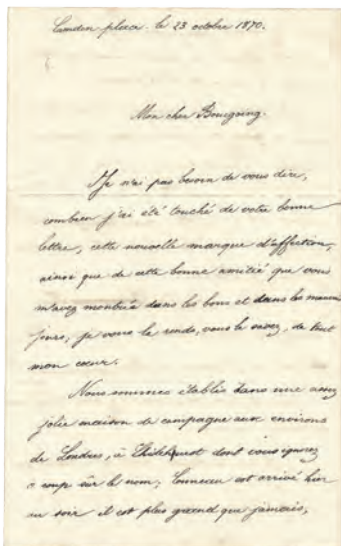 Camden place. le 23 octobre 1870.
Mon cher Bourgoing.
Je n'ai pas besoin de vous dire,
combien j'ai été touché de votre bonne
lettre, cette nouvelle marque d'affection,
ainsi que de cette bonne amitié que vous
m'avez montrée dans les bons et dans les mauvais
jours, je vous le rends, vous le savez, de tout
mon cœur.
Nous sommes établis dans une assez
jolie maison de campagne aux environs
de Londres, à Chislehurst dont vous ignorez
à coup sûr le nom; Conneau est arrivé hier
au soir il est plus grand que jamais,